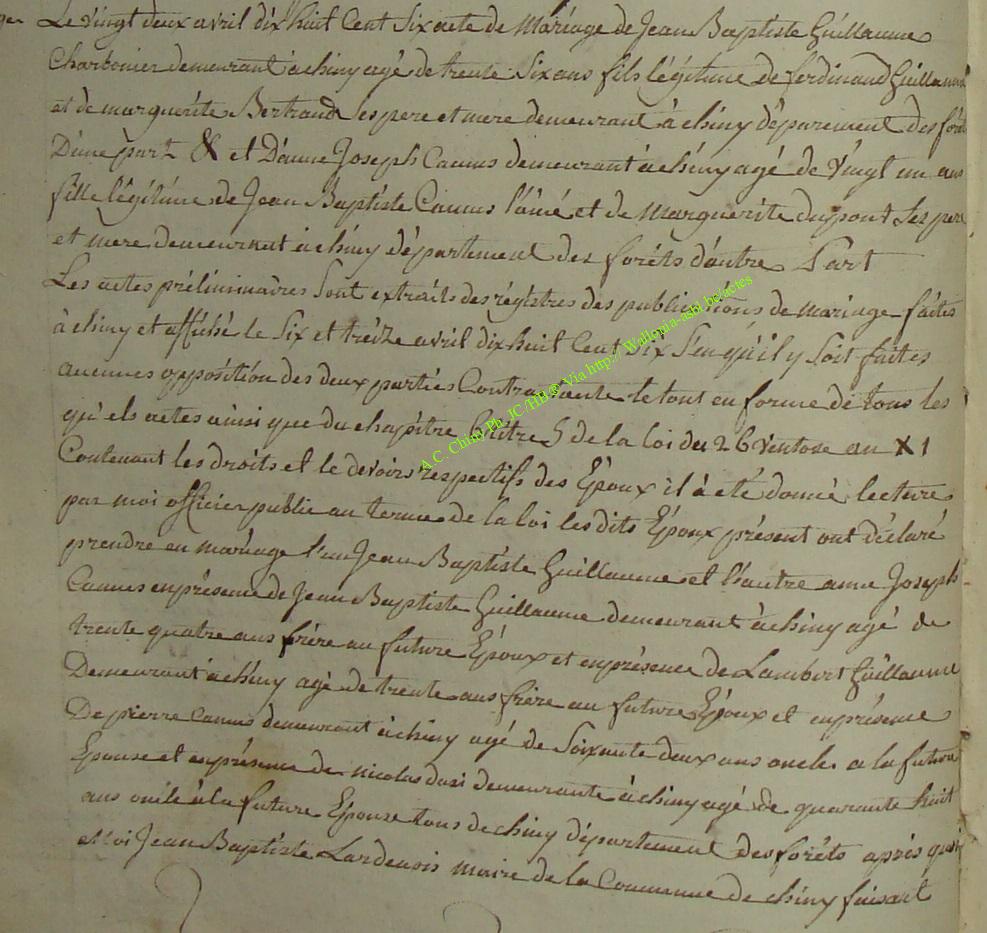 Le vingt deux avril dix huit Cent Six acte de Mariage de Jean Baptiste Guillaume
Charbonier demeurant à chiny agé de trente Six ans fils légitime de ferdinand Guillaume
et de marguerite Bertrand ses pere et mere demeurant à chiny déparement des forêt
D'une part & et D'anne Joseph Camus demeurant à chiny agé de vingt un ans
fille légitime de Jean Baptiste Camus l'ainé et de Marguerite dupont Ses pere
et mere demeurant à chiny département des forêts d'autre Part
Les actes préliminaires Sont extraits des régistres des publications de mariage faites
à chiny et affiché le Six et treize avril dix huit Cent Six S'en qu'il y Soit faites
aucunes opposition des deux parties Contractante le tout en forme de tous les
qu'els actes ainsi que du chapitre 6 titre 5 de la loi du 26 ventose an X1
Contenant les droits et le devoirs respectifs des Époux il à été donné lecture
par moi officier public au terme de la loi les dits Époux présent ont déclaré
prendre en mariage l'un Jean Baptiste Guillaume et l'autre anne Joseph
Camus en présence de Jean Baptiste Guillaume demeurant à chiny agé de
trente quatre ans frère au future Époux et en présence de Lambert Guillaume
Demeurant à chiny agé de trente ans frère au future Époux et en présence
De pierre Camus demeurant à chiny agé de Soixante deux ans oncle a la future
Epouse et en présence de nicolas dasi demeurante à chiny agé de quarante huit
ans oncle à la future Epouse tous de chiny département des forêts après quoi
Moi Jean Baptiste Lardenois maire de la Commune de chiny faisant
A.C. Chiny Ph. JC /HB® Via http:// Wallonia-asbl.be/actes